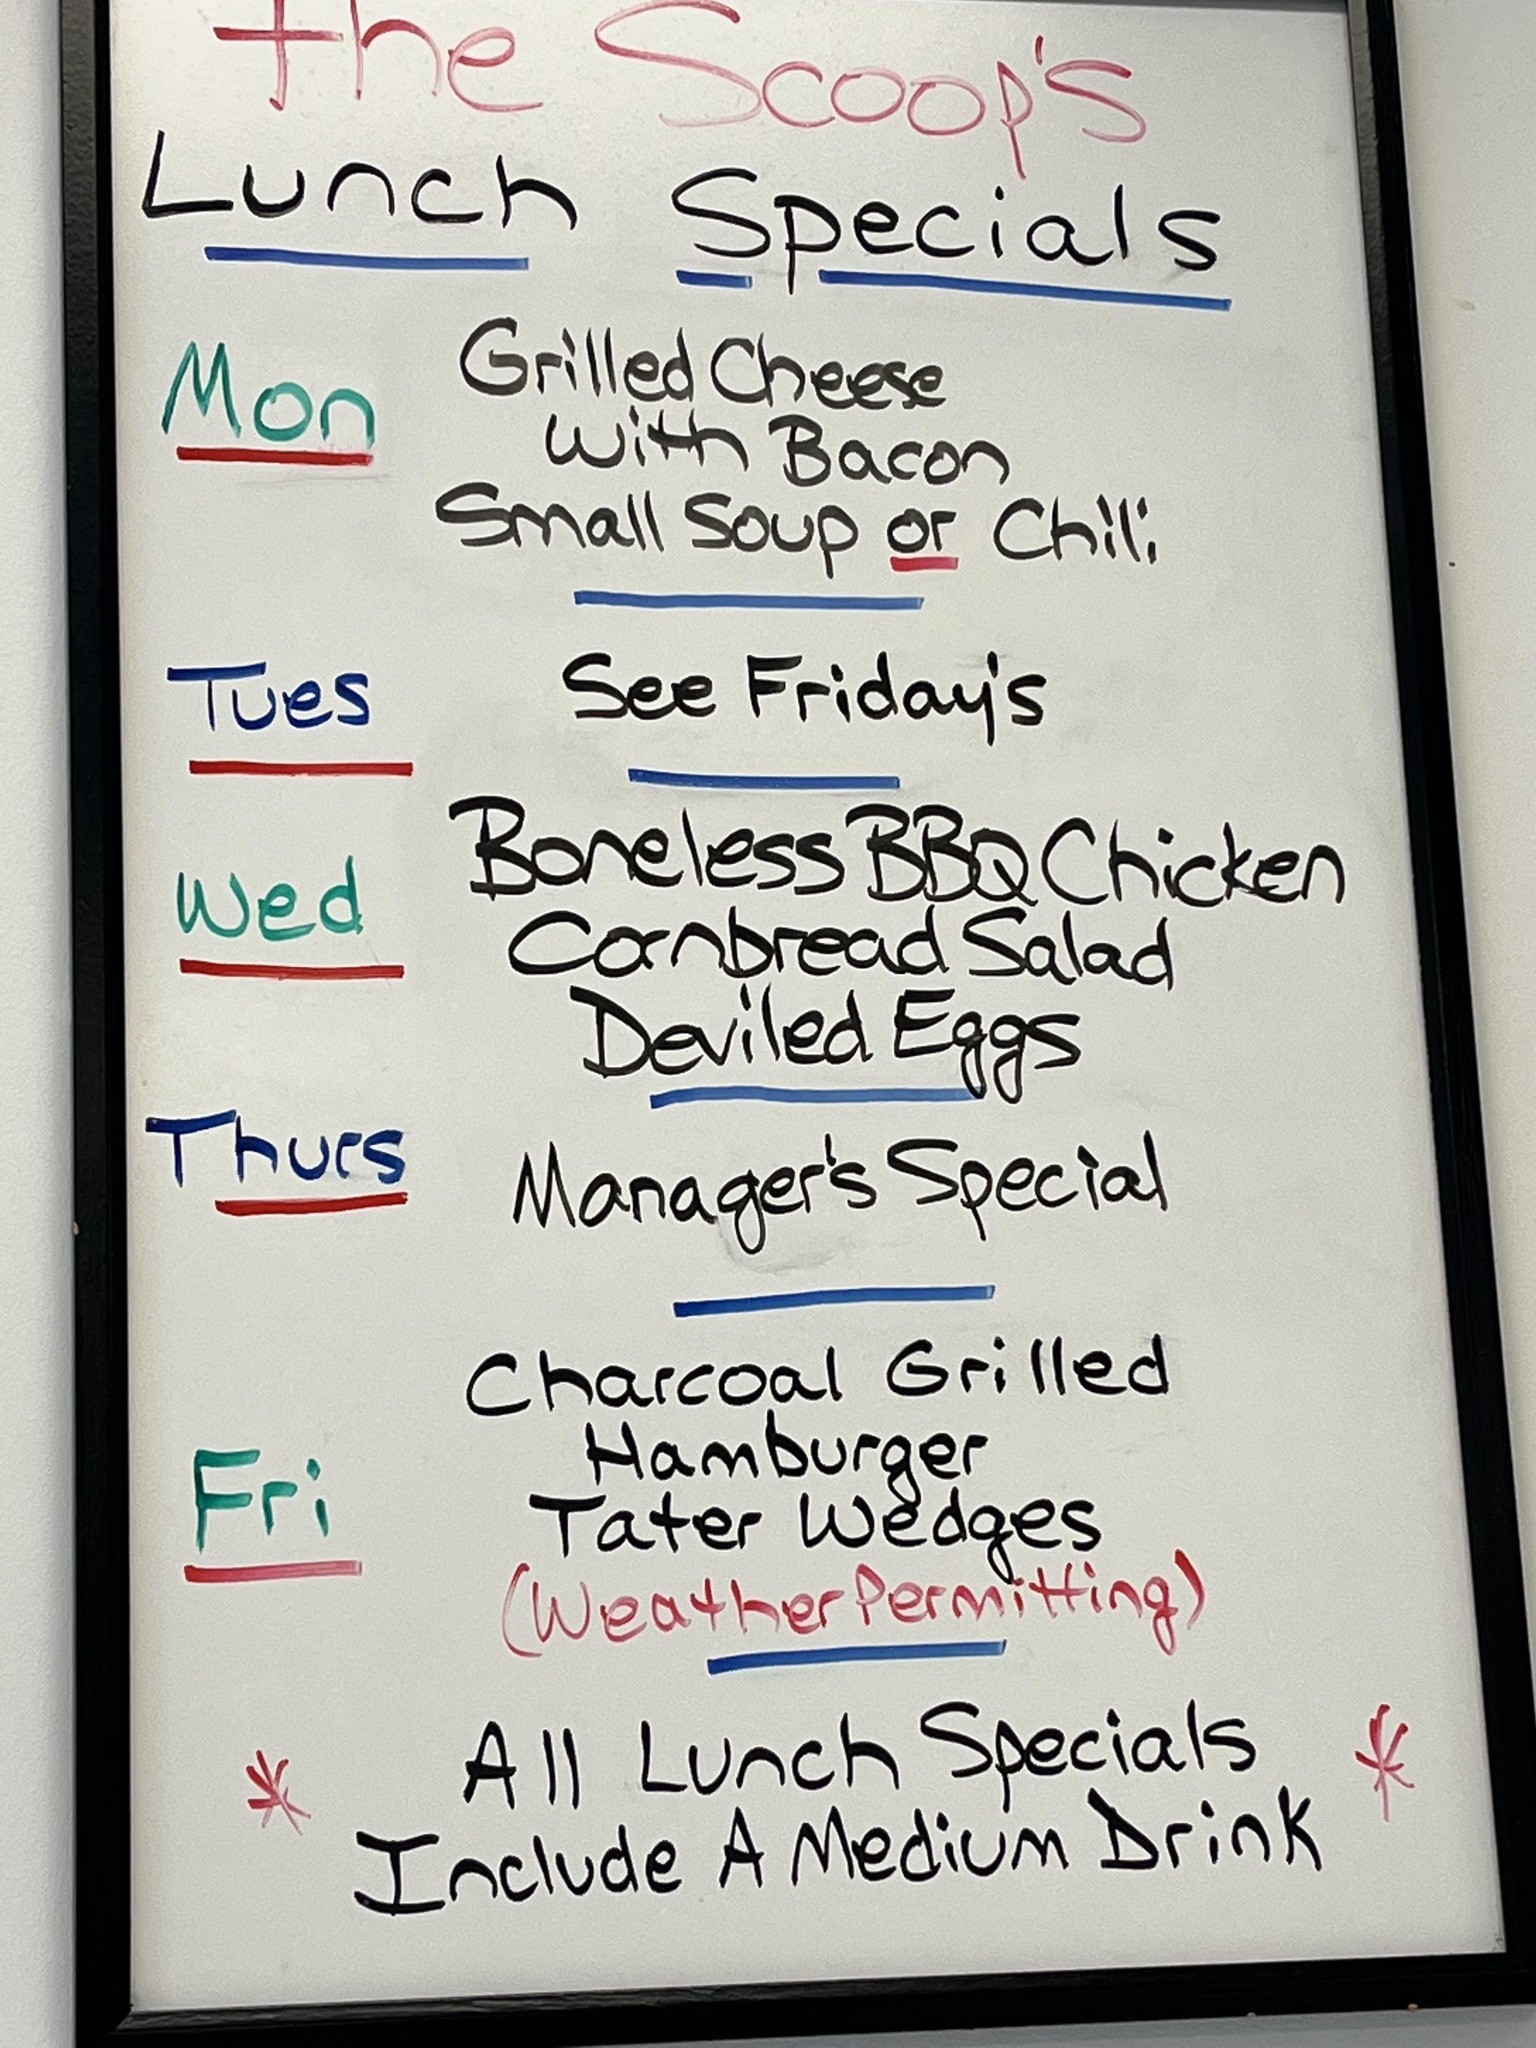 the Scoop's
Lunch Specials
Mon
Grilled Cheese
With Bacon
Small Soup or Chili
Tues
See Friday's
Wed
Boneless BBQ Chicken
Cornbread Salad
Deviled Eggs
Thurs
Manager's Special
Fri
Charcoal Grilled
Hamburger
Tater Wedges
(Weather Permitting)
* All Lunch Specials *
Include A Medium Drink